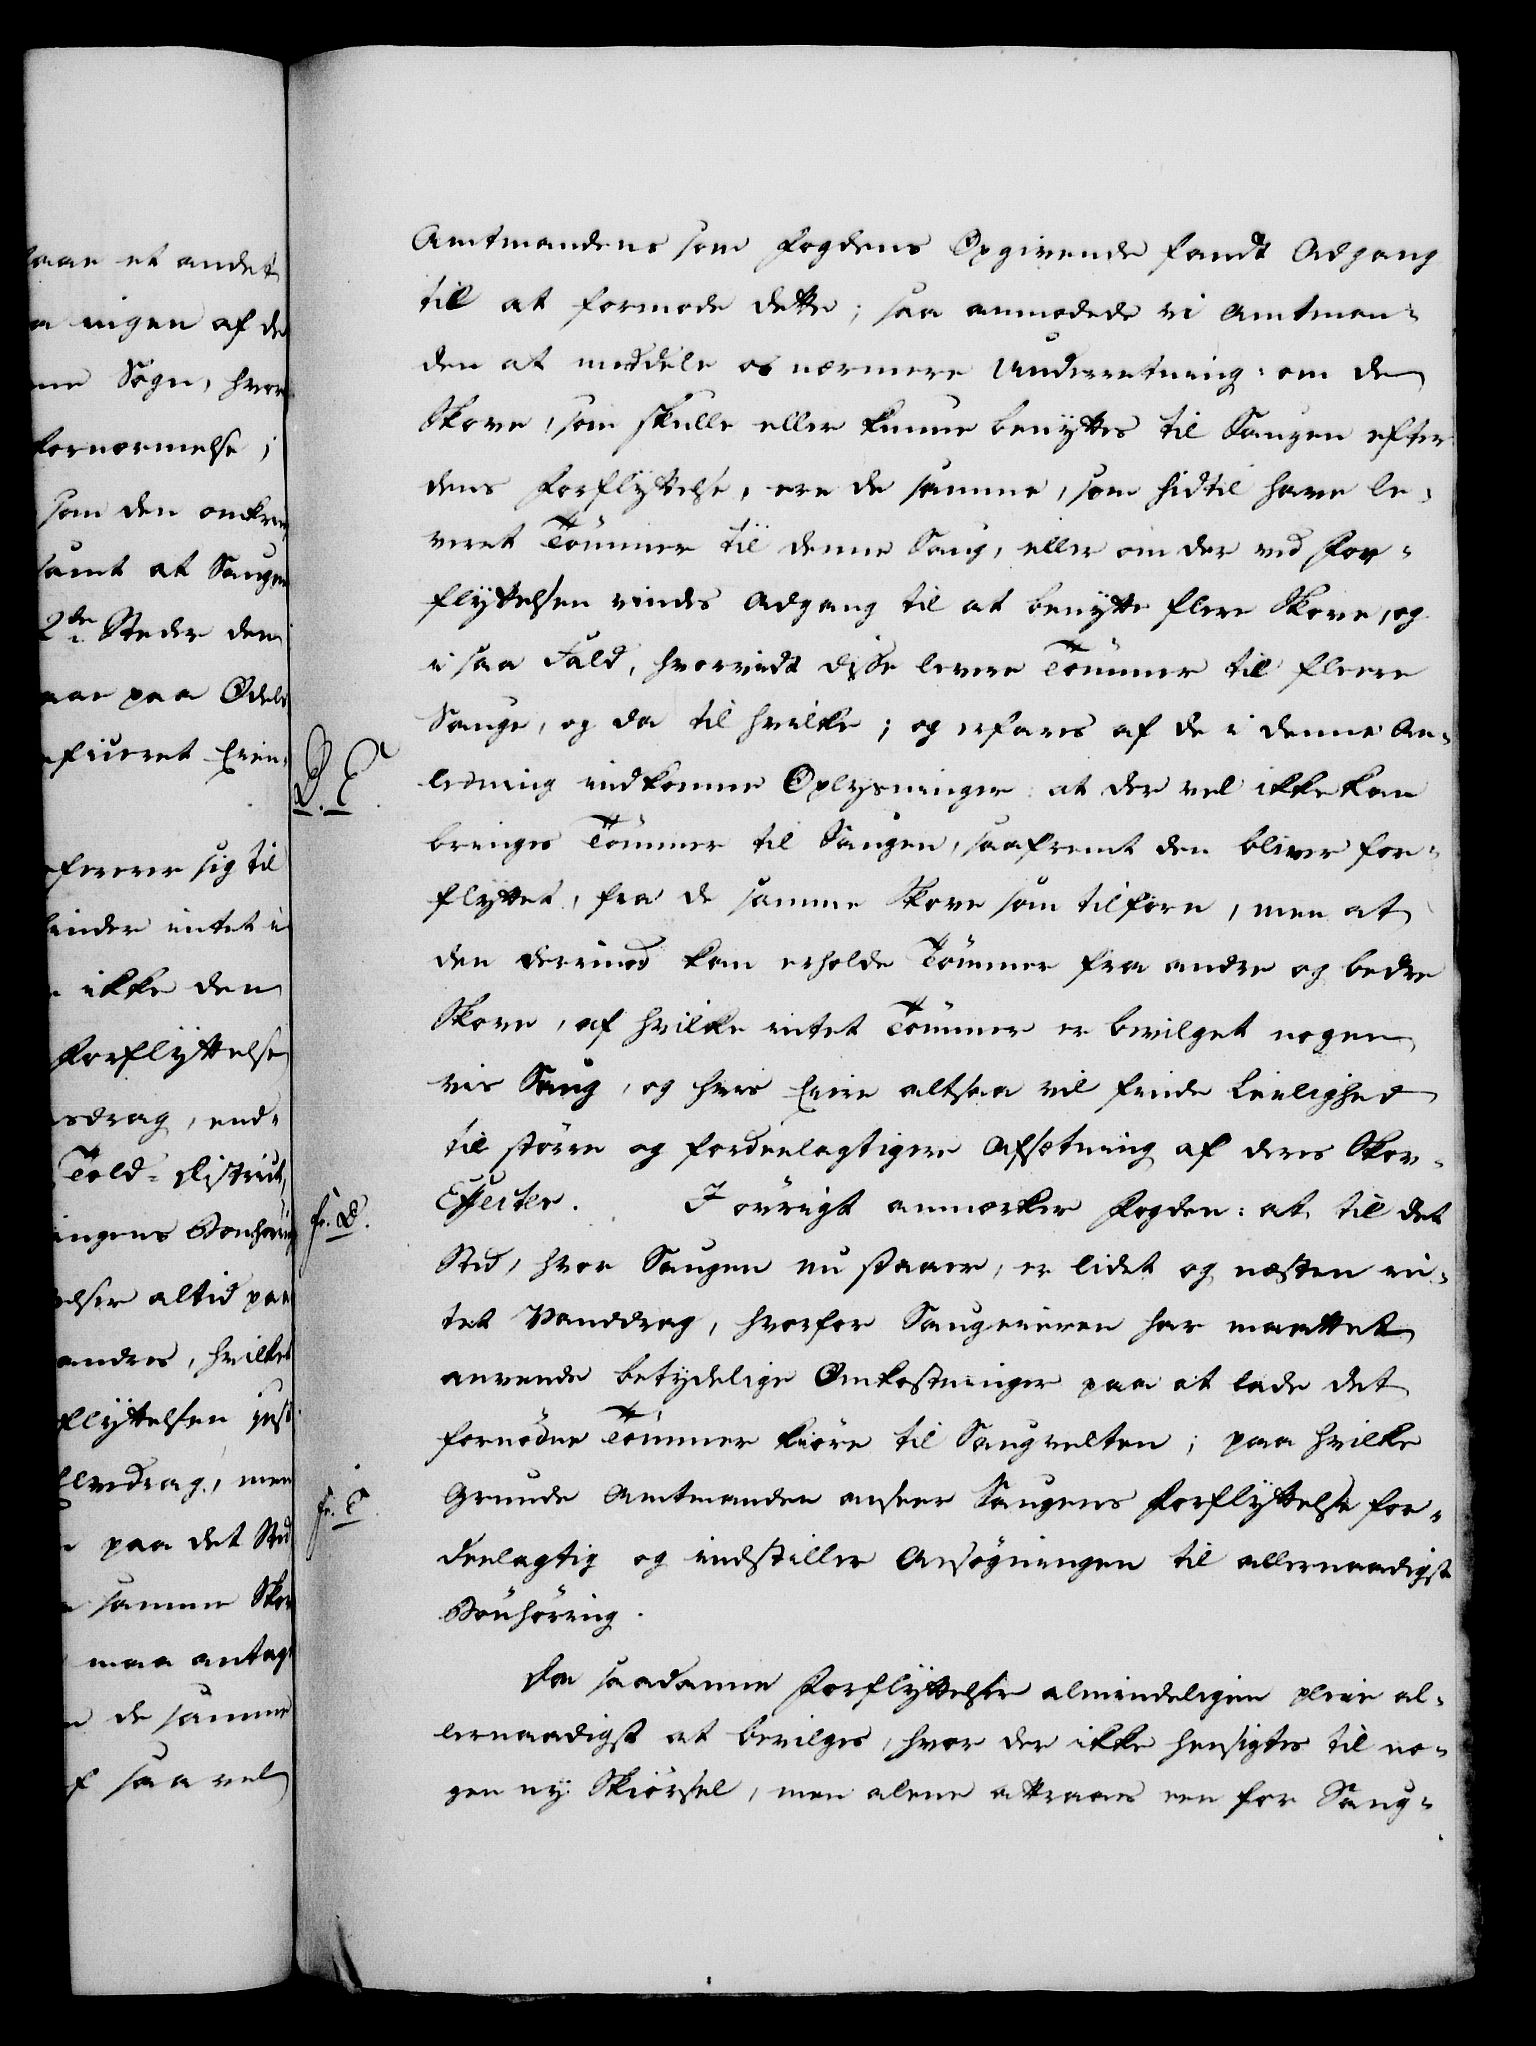 aae et andet
a ingen af de
me Sogn, hvor
fornærmelse;
som den omkring
samt at Saugen
2de Steder den
aar paa Odels
efiieret Eien
eferere sig til
finder intet i
ikke den
Forflyttelse
sdrag, end-
Told-District,
ingens Bönhöring
elser altid paa
andres, hvilket
flyttelsen just
Elvedrag, men
paa det Sted
samme Skov
maa antage
de samme
f saavel
Amtmandens som Fogdens Opgivende fandt Adgang
til at formode dette; saa anmodede vi Amtman-
den at meddele os nærmere Underretning: om de
Skove, som skulle eller kunne benyttes til Saugen efter
dens Forflyttelse, ere de samme, som hidtil have le-
veret Tömmer til denne Saug, eller om der ved For-
flyttelsen vindes Adgang til at benytte flere Skove, og
i saa Fald, hvorvidt disse levere Tömmer til fleere
Sauge, og da til hvilke; og erfares af de i denne An-
D. E.
ledning indkomne Oplysninger: at der vel ikke kan
bringes Tömmer til Saugen, saafremt den bliver for-
flyttet, fra de samme Skove som tilforn, men at
den derimod kan erholde Tömmer fra andre og bedre
Skove, af hvilke intet Tömmer er bevilget nogen
vis Saug, og hvis Eiere altsaa vil finde Leilighed
til större og fordeelagtigere Afsætning af deres Skov-
Effecter. I övrigt anmærker Fogden: at til det
fr. D.
Sted, hvor Saugen nu staaer, er lidet og næsten in-
tet Vanddrag, hvorfor Saugeieren har maattet
anvende betydelige Omkostninger paa at lade det
fornödne Tömmer kiöre til Saugvelten; paa hvilke
Grunde Amtmanden anseer Saugens Forflyttelse for-
fr. E.
deelagtig og indstiller Ansögningen til allernaadigst
Bönhöring.
Da saadanne Forflyttelser almindeligen pleie al-
lernaadigst at bevilges, hvor der ikke hensigtes til no-
gen ny Skiörsel, men alene attraaes een for Saug-